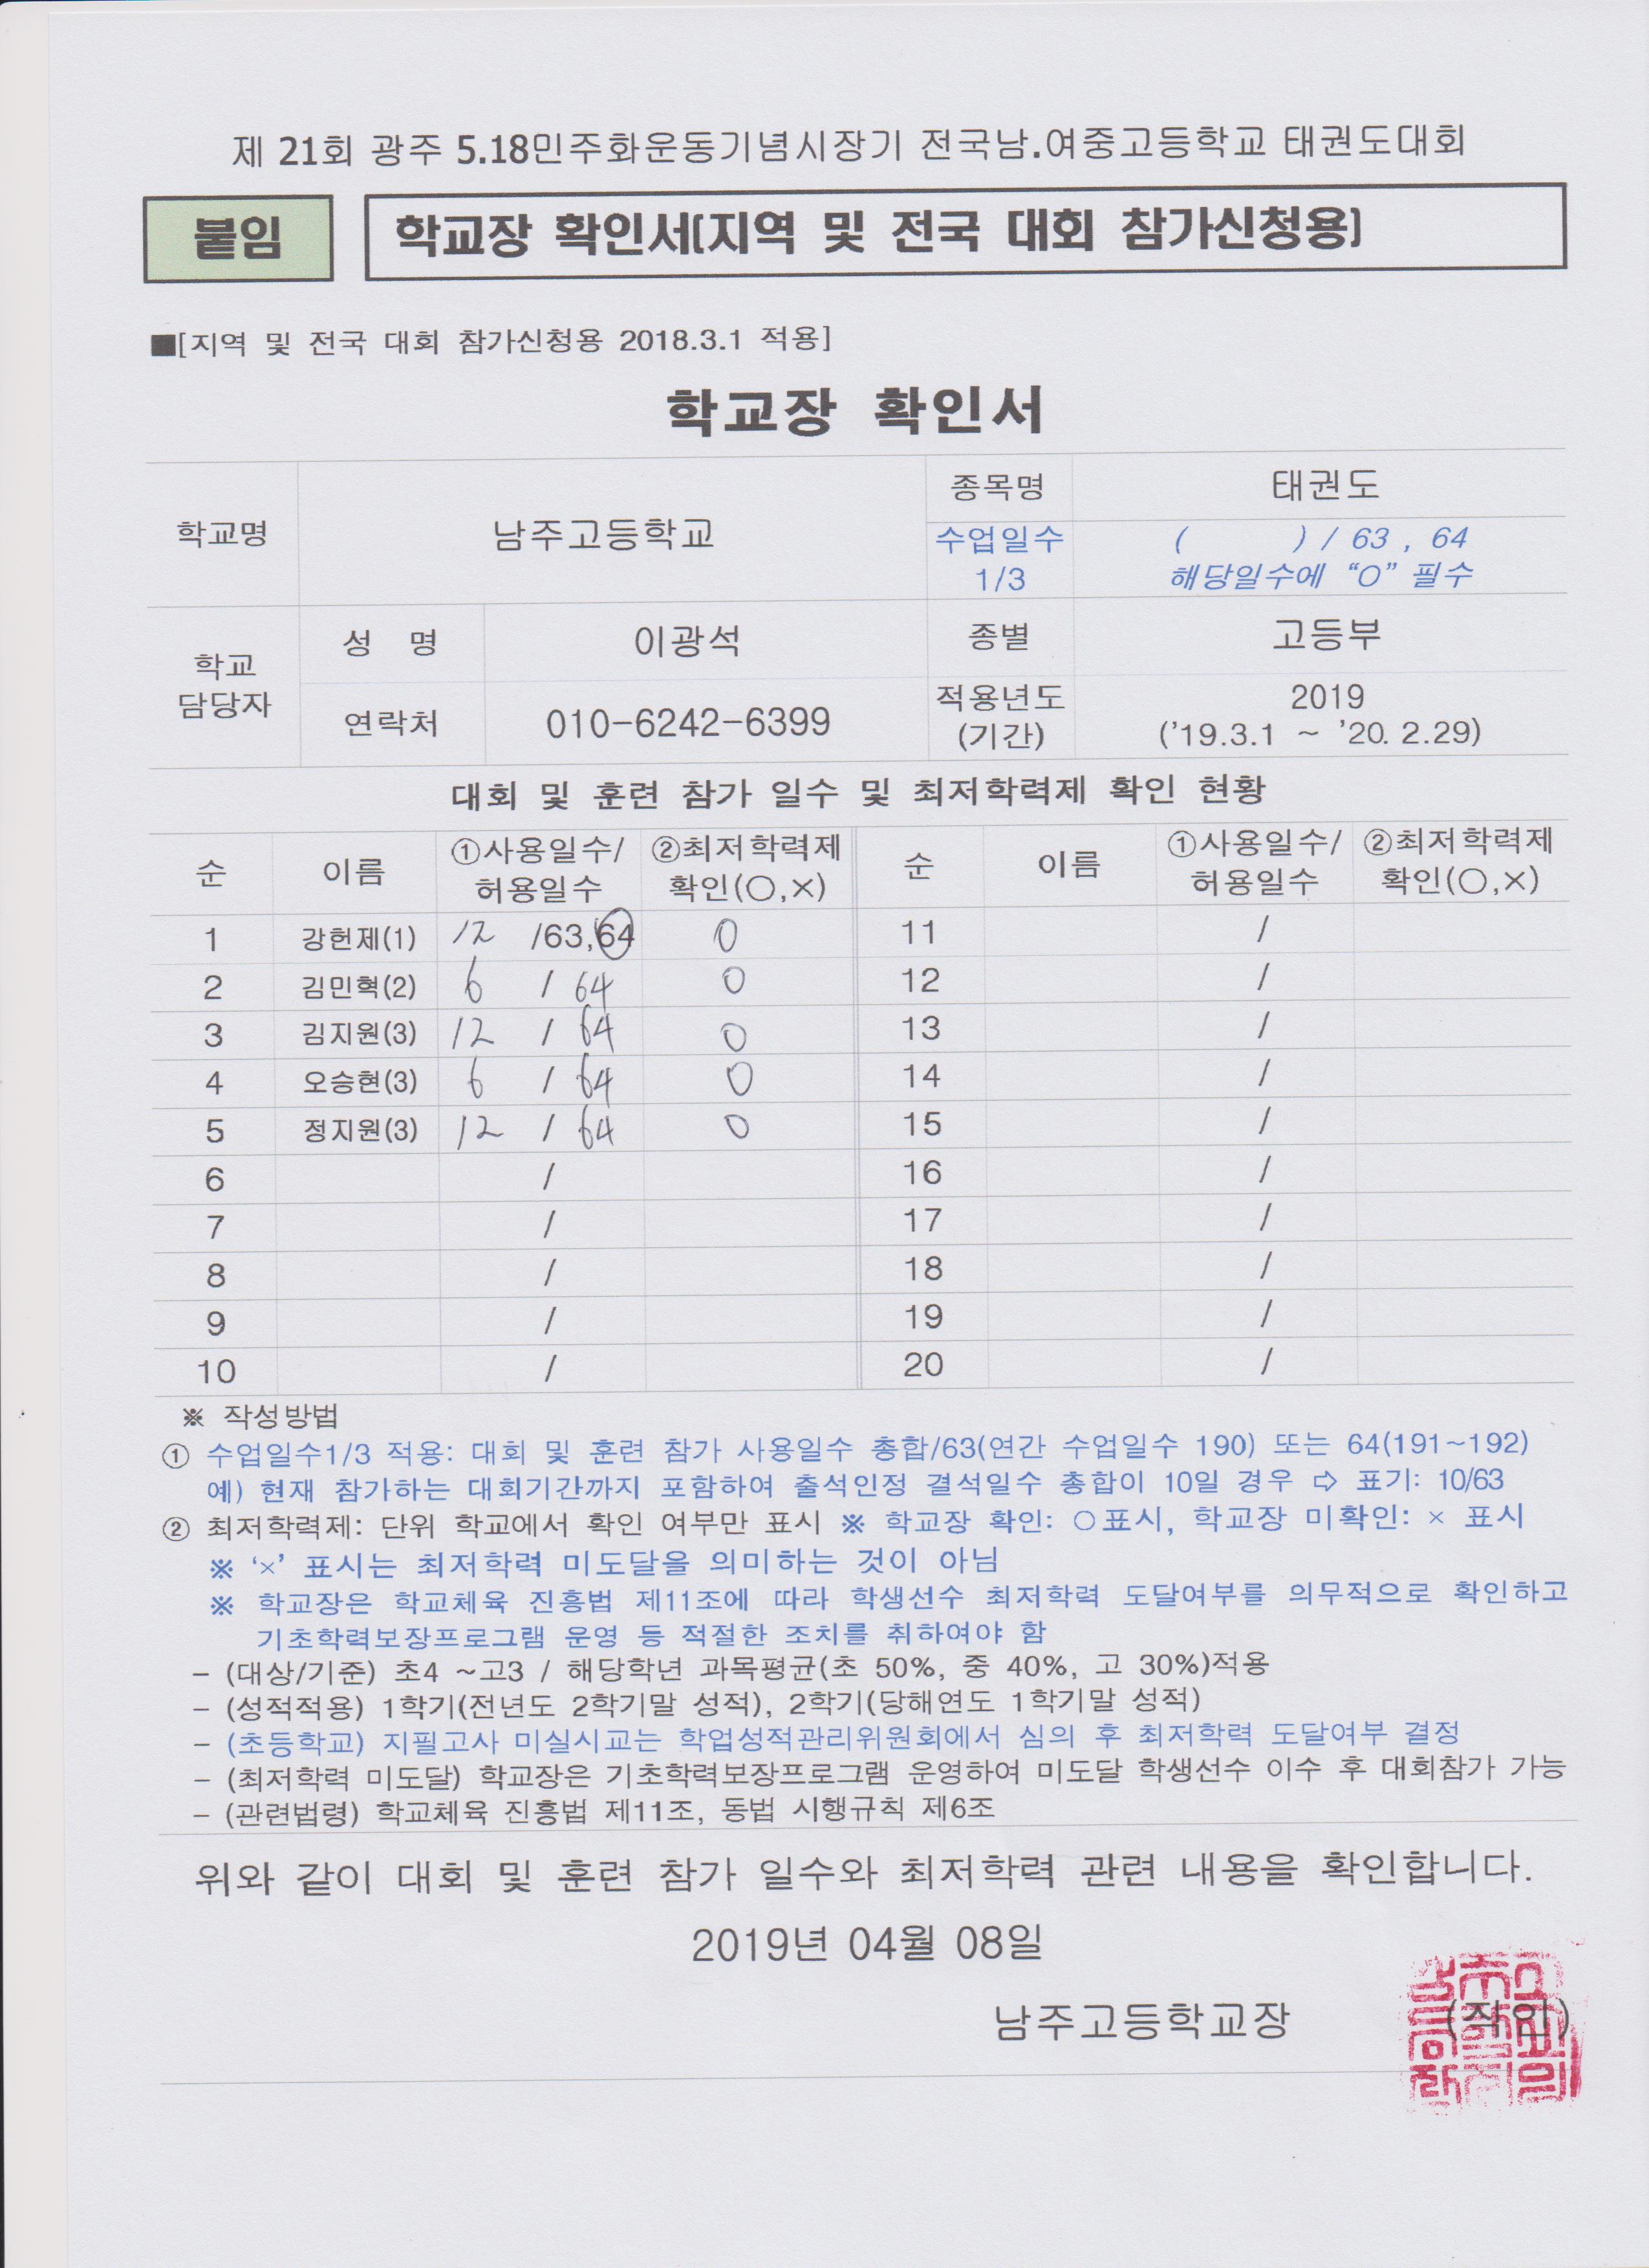 제 21회 광주 5.18민주화운동기념시장기 전국남.여중고등학교 태권도대회
붙임 학교장 확인서(지역 및 전국 대회 참가신청용)
■[지역 및 전국 대회 참가신청용 2018.3.1 적용]
학교장 확인서
학교명 남주고등학교 종목명 태권도
수업일수 1/3 ( ) / 63 , 64
해당일수에 “O” 필수
학교 담당자 성 명 이광석 종별 고등부
연락처 010-6242-6399 적용년도 (기간) 2019
('19.3.1 ~ '20. 2.29)
대회 및 훈련 참가 일수 및 최저학력제 확인 현황
순 이름 ①사용일수/허용일수 ②최저학력제 확인(○,×) 순 이름 ①사용일수/허용일수 ②최저학력제 확인(○,×)
1 강헌제(1) 12 /63,64 0 11 /
2 김민혁(2) 6 / 64 0 12 /
3 김지원(3) 12 / 64 0 13 /
4 오승현(3) 6 / 64 0 14 /
5 정지원(3) 12 / 64 0 15 /
6 / 16 /
7 / 17 /
8 / 18 /
9 / 19 /
10 / 20 /
※ 작성방법
① 수업일수1/3 적용: 대회 및 훈련 참가 사용일수 총합/63(연간 수업일수 190) 또는 64(191~192)
예) 현재 참가하는 대회기간까지 포함하여 출석인정 결석일수 총합이 10일 경우 ⇨ 표기: 10/63
② 최저학력제: 단위 학교에서 확인 여부만 표시 ※ 학교장 확인: ○표시, 학교장 미확인: × 표시
※ ‘×’ 표시는 최저학력 미도달을 의미하는 것이 아님
※ 학교장은 학교체육 진흥법 제11조에 따라 학생선수 최저학력 도달여부를 의무적으로 확인하고
기초학력보장프로그램 운영 등 적절한 조치를 취하여야 함
- (대상/기준) 초4 ~고3 / 해당학년 과목평균(초 50%, 중 40%, 고 30%)적용
- (성적적용) 1학기(전년도 2학기말 성적), 2학기(당해연도 1학기말 성적)
- (초등학교) 지필고사 미실시교는 학업성적관리위원회에서 심의 후 최저학력 도달여부 결정
- (최저학력 미도달) 학교장은 기초학력보장프로그램 운영하여 미도달 학생선수 이수 후 대회참가 가능
- (관련법령) 학교체육 진흥법 제11조, 동법 시행규칙 제6조
위와 같이 대회 및 훈련 참가 일수와 최저학력 관련 내용을 확인합니다.
2019년 04월 08일
남주고등학교장 (직인)